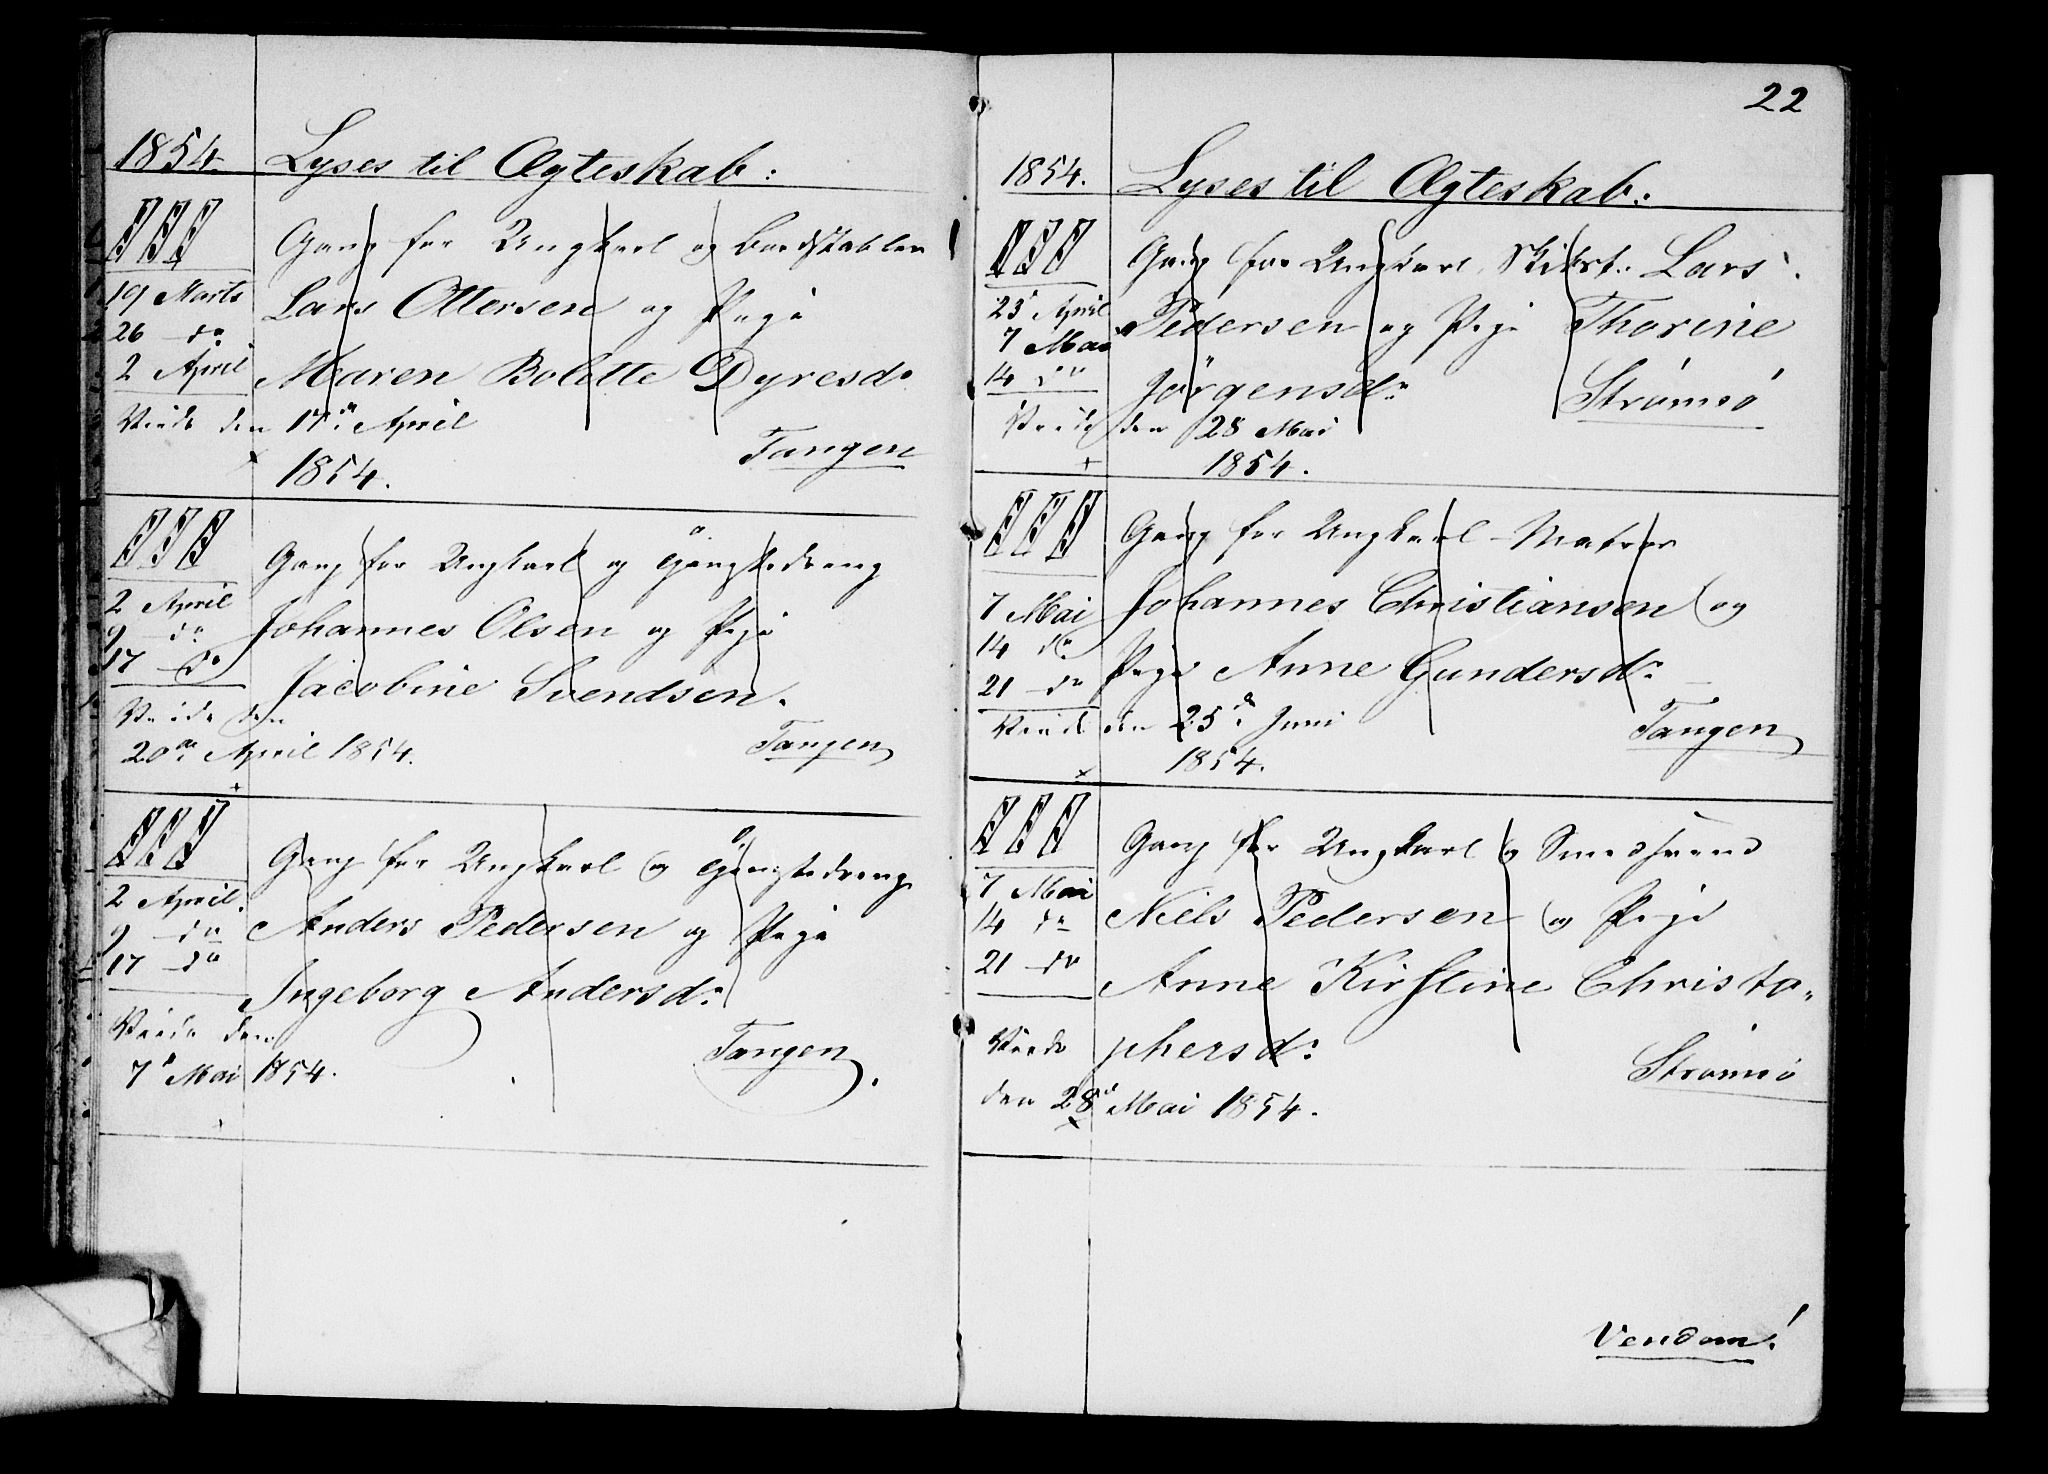 1854. Lyses til Ægteskab:
III Gang for Ungkarl og Bordstabler
19 Marts Lars Ottersen og Pige
26 do
2 April Maren Bolette Dyresdr
Viede den 17de April
1854. Tangen
III Gang for Ungkarl og
2 April
9 do Johannes Olsen og Pige
17 do Jacobine Svendsen.
Viede den
20de April 1854. Tangen
III Gang for Ungkarl og
2 April.
9 do Anders Pedersen og Pige
17 do Ingeborg Andersdr
Viede den Tangen.
7de Mai 1854.
22
1854. Lyses til Ægteskab:
III Gang for Ungkarl Lars
23 April Pedersen og Pige Thorine
7 Mai
14 do Jørgensdr Strømsø
Viede den 28 Mai
1854.
III Gang for Ungkarl Matros
7 Mai Johannes Christiansen og
14 do
21 do Pige Anne Gundersdr
Viede den 25de Juni Tangen
1854.
III Gang for Ungkarl og Smedsvend
7 Mai
14 do Niels Pedersen og Pige
21 do Anne Kirstine Christo-
Viede phersdr Strømsø
den 28de Mai 1854.
Vendom!